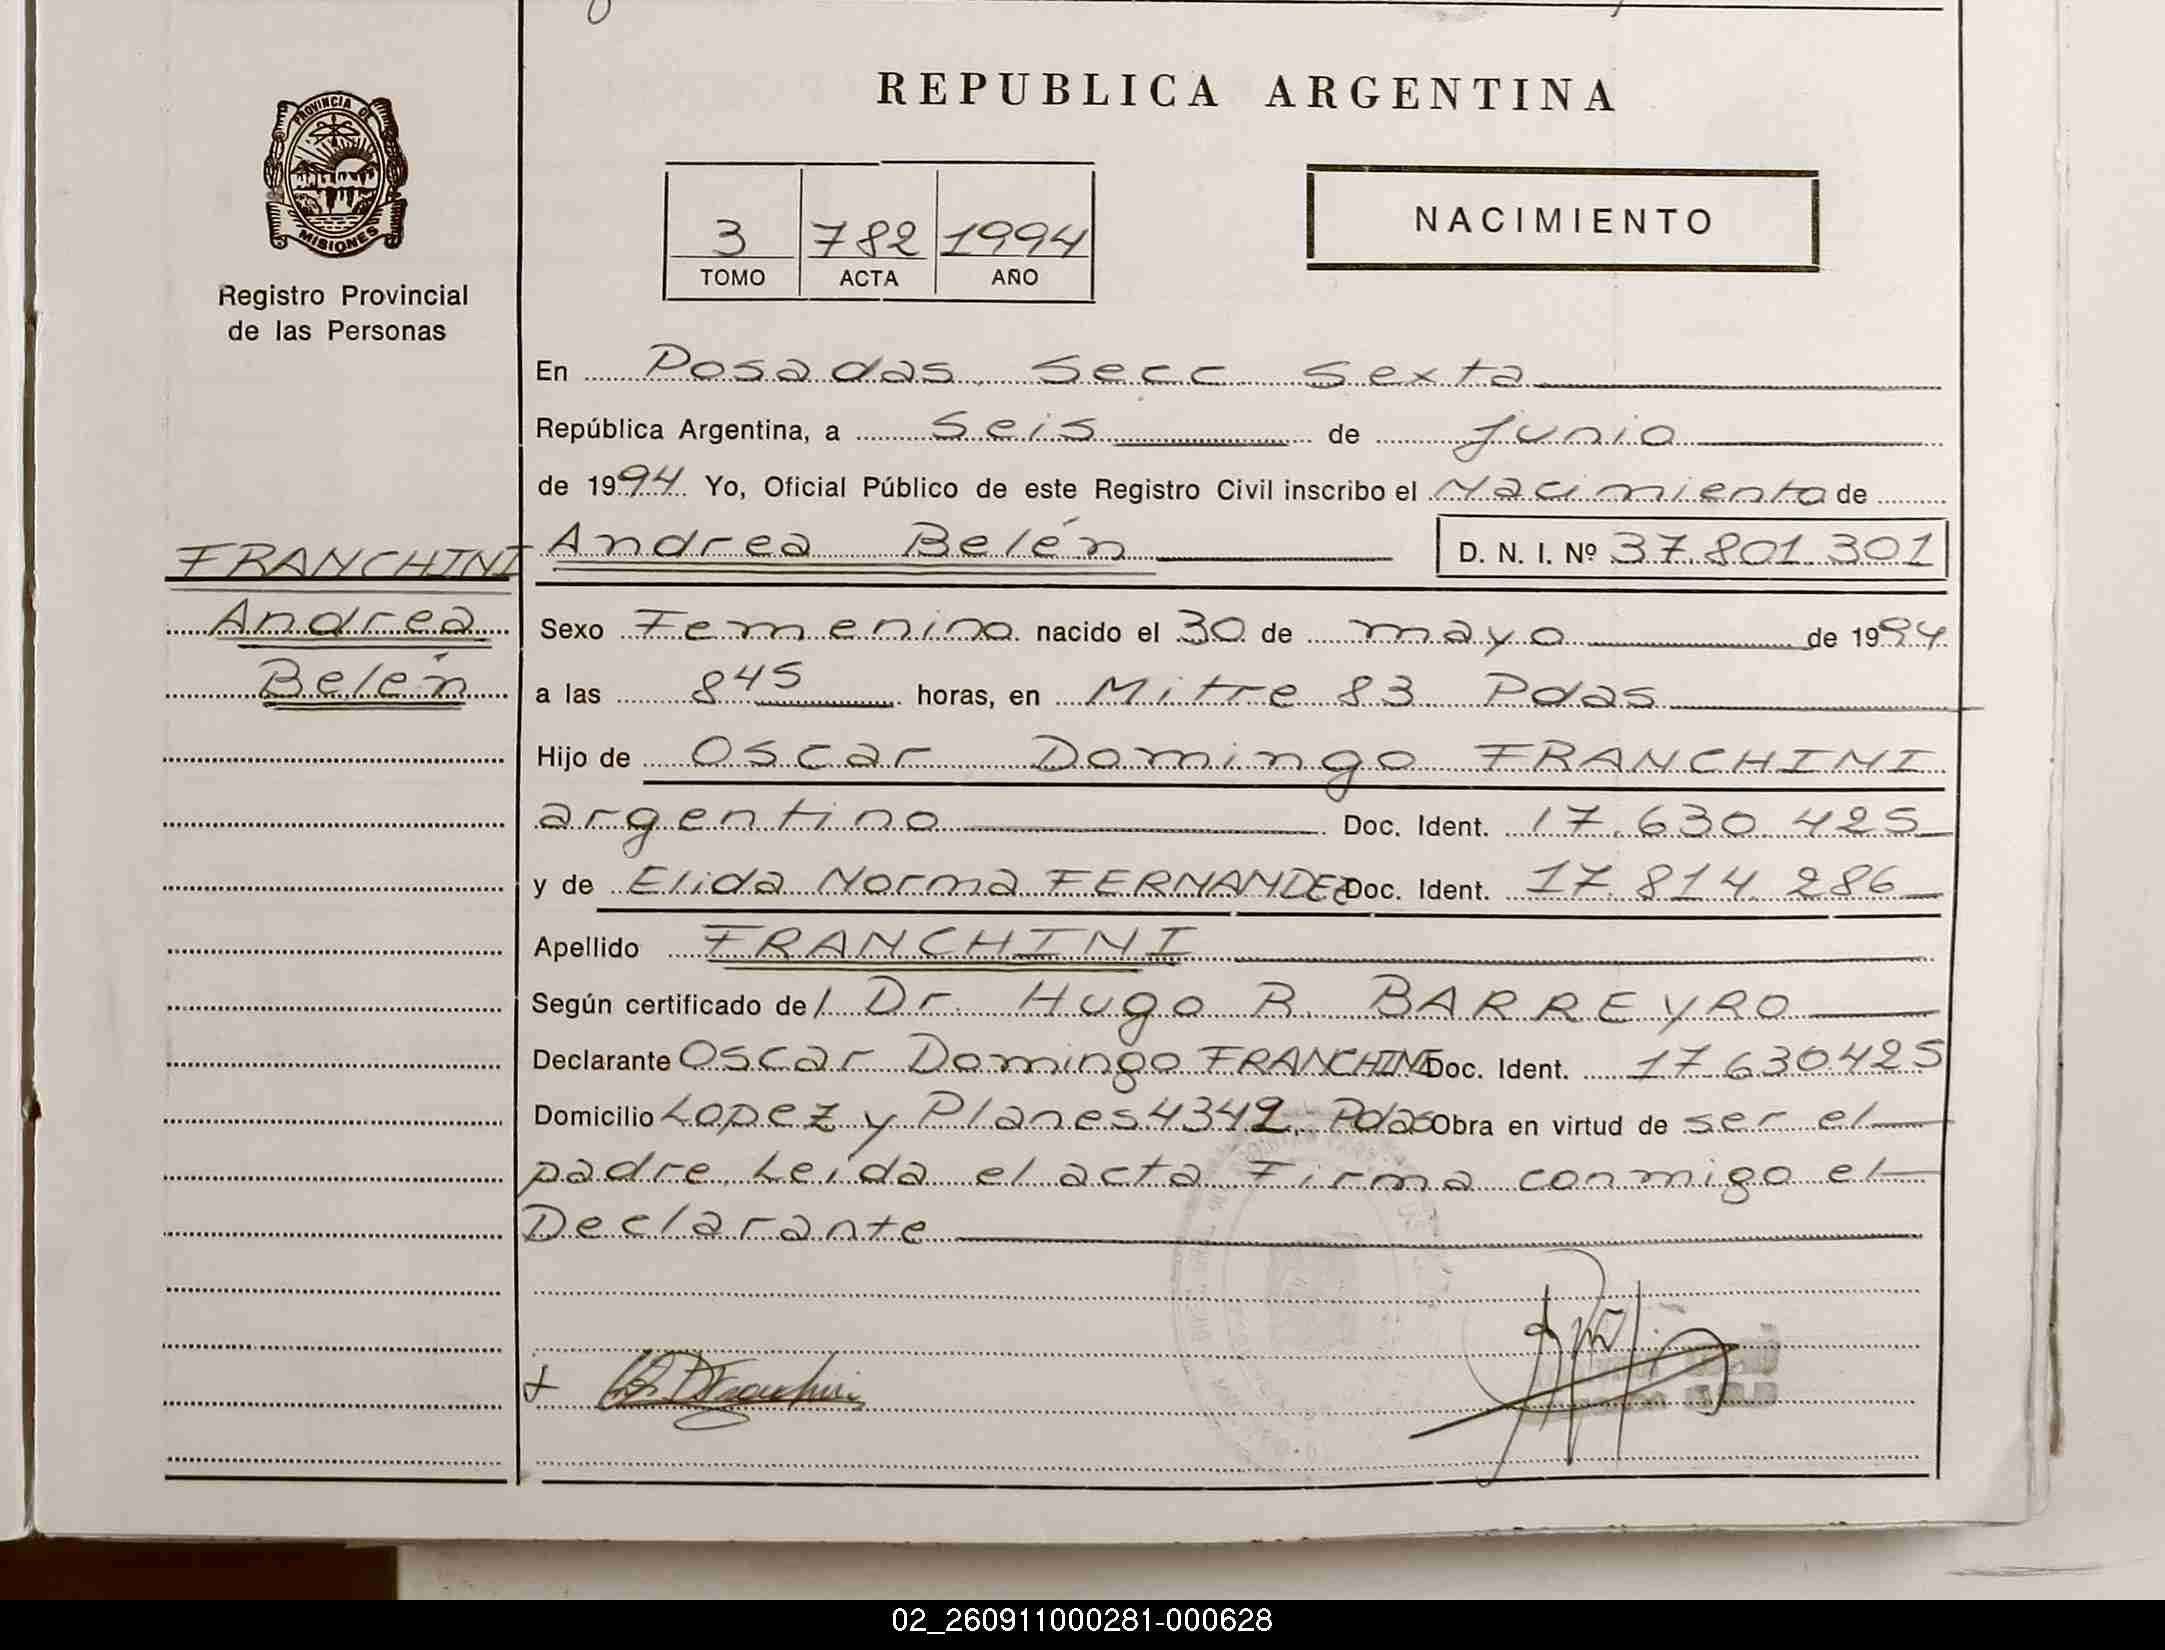 REPUBLICA ARGENTINA
PROVINCIA DE
MISIONES
Registro Provincial
de las Personas
3 782 1994
TOMO ACTA AÑO
NACIMIENTO
En Posadas Secc Sexta
República Argentina, a Seis de Junio
de 1994. Yo, Oficial Público de este Registro Civil inscribo el Nacimiento de
Andrea Belén D. N. I. Nº 37.801.301
FRANCHINI
Andrea
Belén
Sexo Femenino nacido el 30 de mayo de 1994
a las 8 45 horas, en Mitre 83 Pdas
Hijo de Oscar Domingo FRANCHINI
argentino Doc. Ident. 17.630.425
y de Elida Norma FERNANDEZ Doc. Ident. 17.814.286
Apellido FRANCHINI
Según certificado de/ Dr. Hugo R. BARREYRO
Declarante Oscar Domingo FRANCHINI Doc. Ident. 17.630425
Domicilio Lopez y Planes 4349, Pdas Obra en virtud de ser el
padre. Leída el acta Firma conmigo el
Declarante
02_260911000281-000628